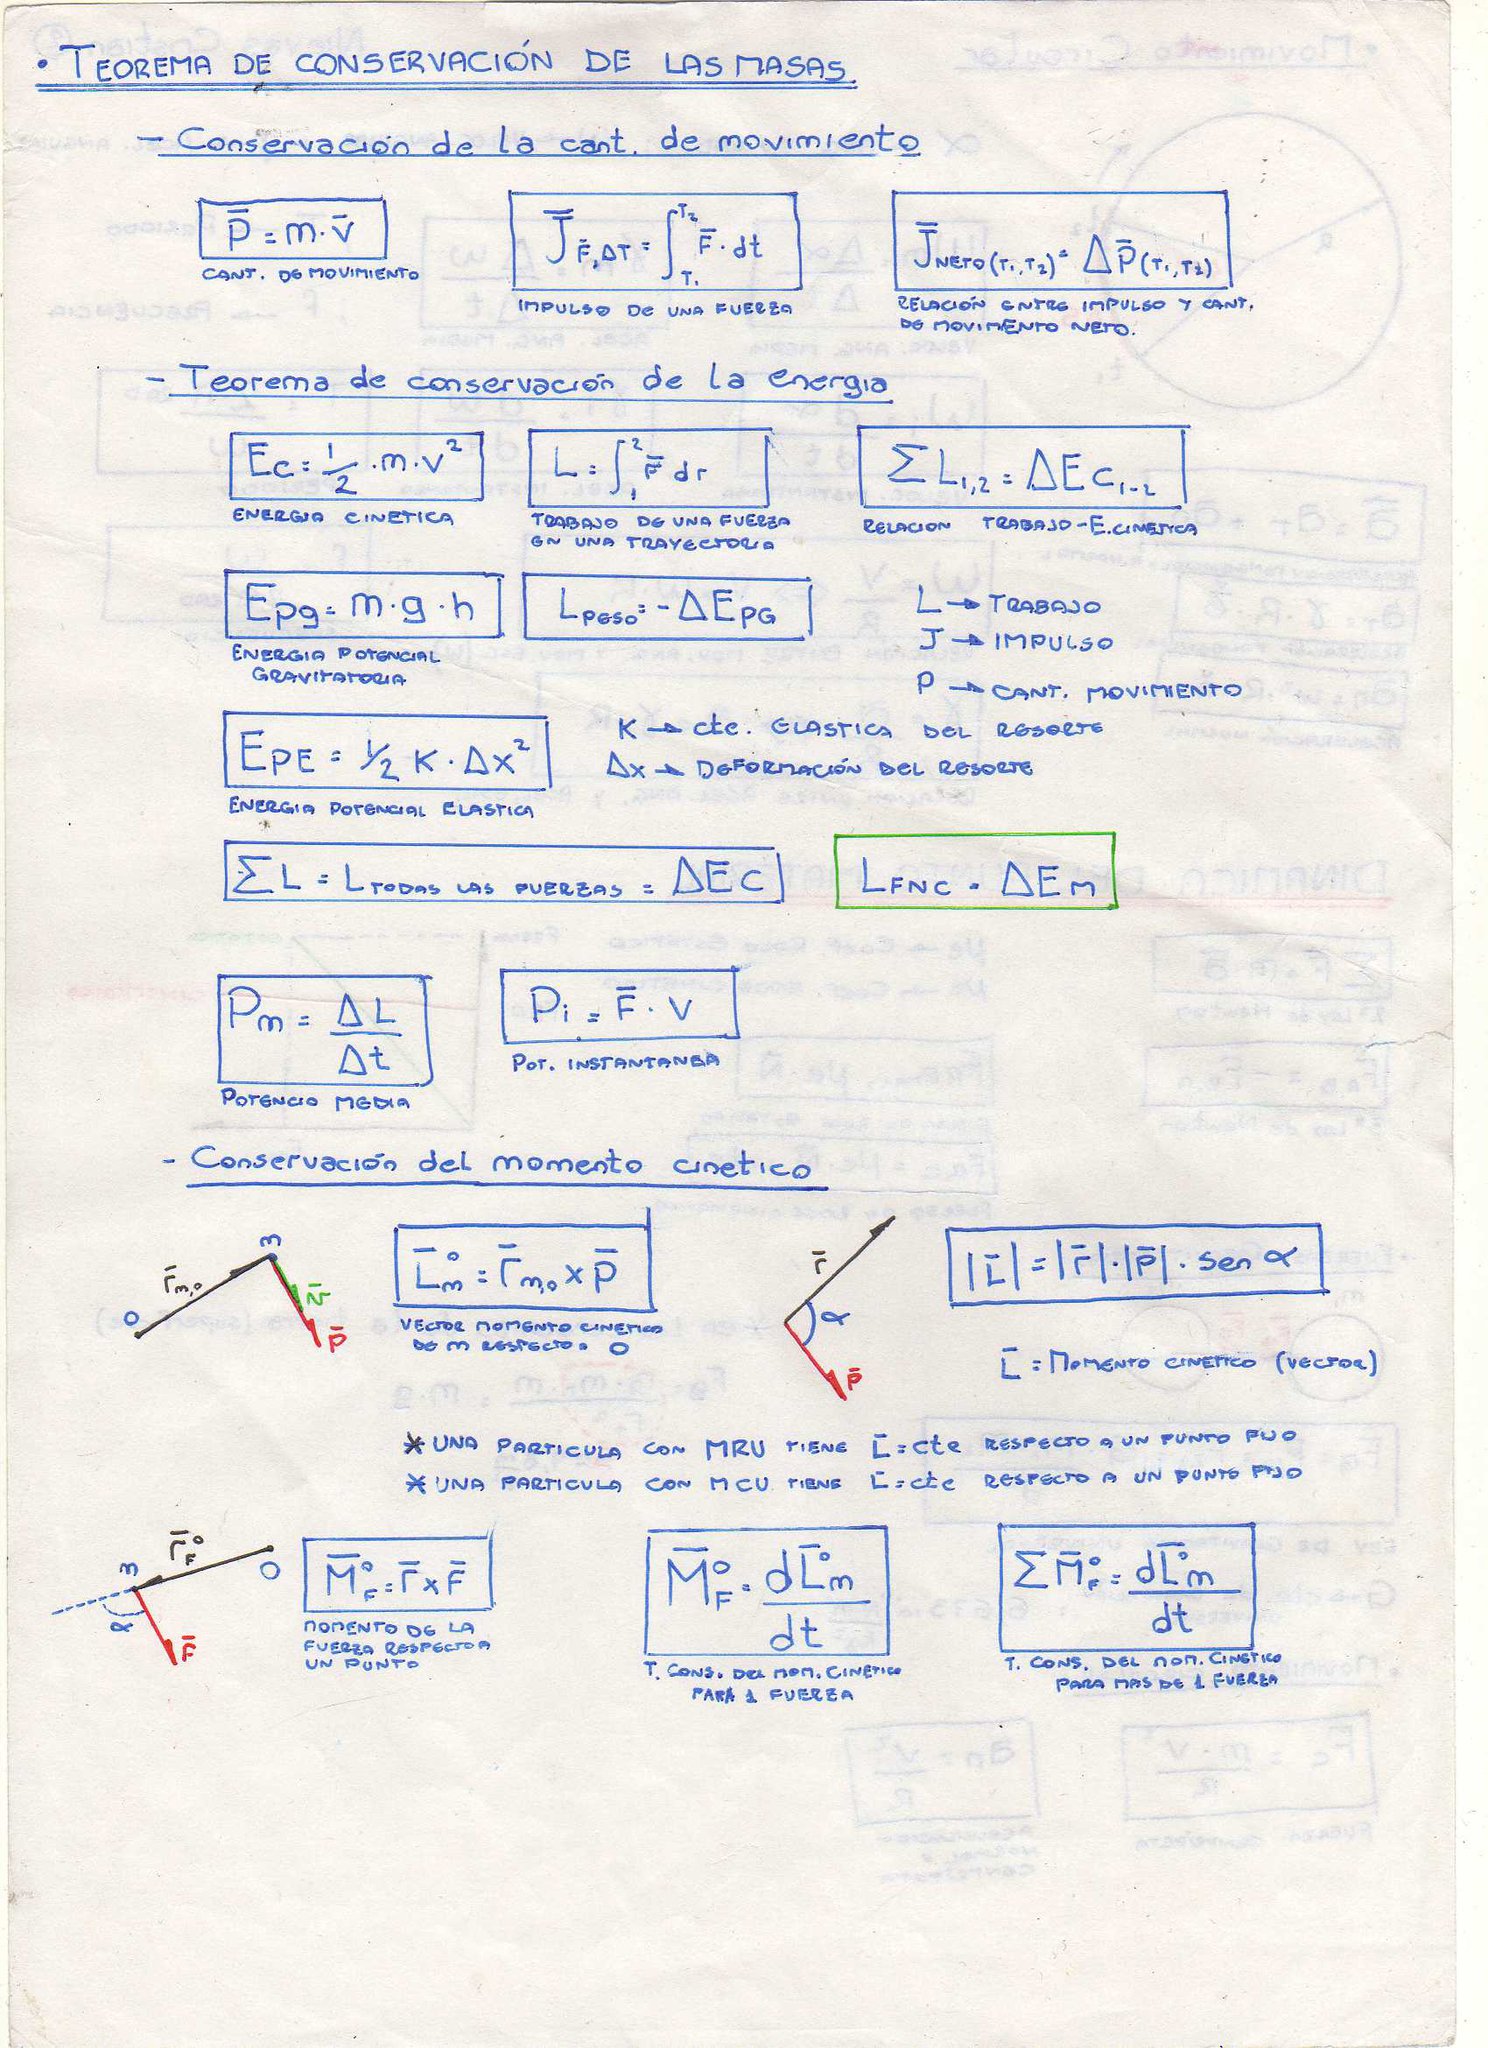 • TEOREMA DE CONSERVACIÓN DE LAS MASAS
- Conservación de la cant. de movimiento
P̄ = m·v̄
CANT. DE MOVIMIENTO
J̄ F̄,ΔT = ∫T₁T₂ F̄·dt
IMPULSO DE UNA FUERZA
J̄ NETO(T₁,T₂) = ΔP̄(T₁,T₂)
RELACIÓN ENTRE IMPULSO Y CANT.
DE MOVIMIENTO NETO.
- Teorema de conservación de la energia
Ec = 1/2 · m · v²
ENERGIA CINETICA
L = ∫₁² F̄ dr
TRABAJO DE UNA FUERZA
EN UNA TRAYECTORIA
ΣL₁,₂ = ΔEc₁₋₂
RELACION TRABAJO-E.CINETICA
Epg = m·g·h
ENERGIA POTENCIAL
GRAVITATORIA
LPESO = -ΔEPG
L → TRABAJO
J → IMPULSO
P → CANT. MOVIMIENTO
EPE = 1/2 K·Δx²
ENERGIA POTENCIAL ELASTICA
K → cte. ELASTICA DEL RESORTE
Δx → DEFORMACIÓN DEL RESORTE
ΣL = L TODAS LAS FUERZAS = ΔEC
LFNC = ΔEm
Pm = ΔL/Δt
POTENCIA MEDIA
Pi = F̄·V
POT. INSTANTANEA
- Conservación del momento cinetico
m
r̄m,o
O
v̄
P̄
L̄m° = r̄m,o x P̄
VECTOR MOMENTO CINETICO
DE m RESPECTO a O
r̄
α
P̄
|L̄| = |r̄|·|P̄|· sen α
L̄ = MOMENTO CINETICO (VECTOR)
* UNA PARTICULA CON MRU TIENE L̄=cte RESPECTO A UN PUNTO FIJO
* UNA PARTICULA CON MCU TIENE L̄=cte RESPECTO A UN PUNTO FIJO
r̄F°
m
O
α
F̄
M̄F° = r̄ x F̄
MOMENTO DE LA
FUERZA RESPECTO A
UN PUNTO
M̄F° = dL̄m°/dt
T. CONS. DEL MOM. CINETICO
PARA 1 FUERZA
ΣM̄F° = dL̄m°/dt
T. CONS. DEL MOM. CINETICO
PARA MAS DE 1 FUERZA